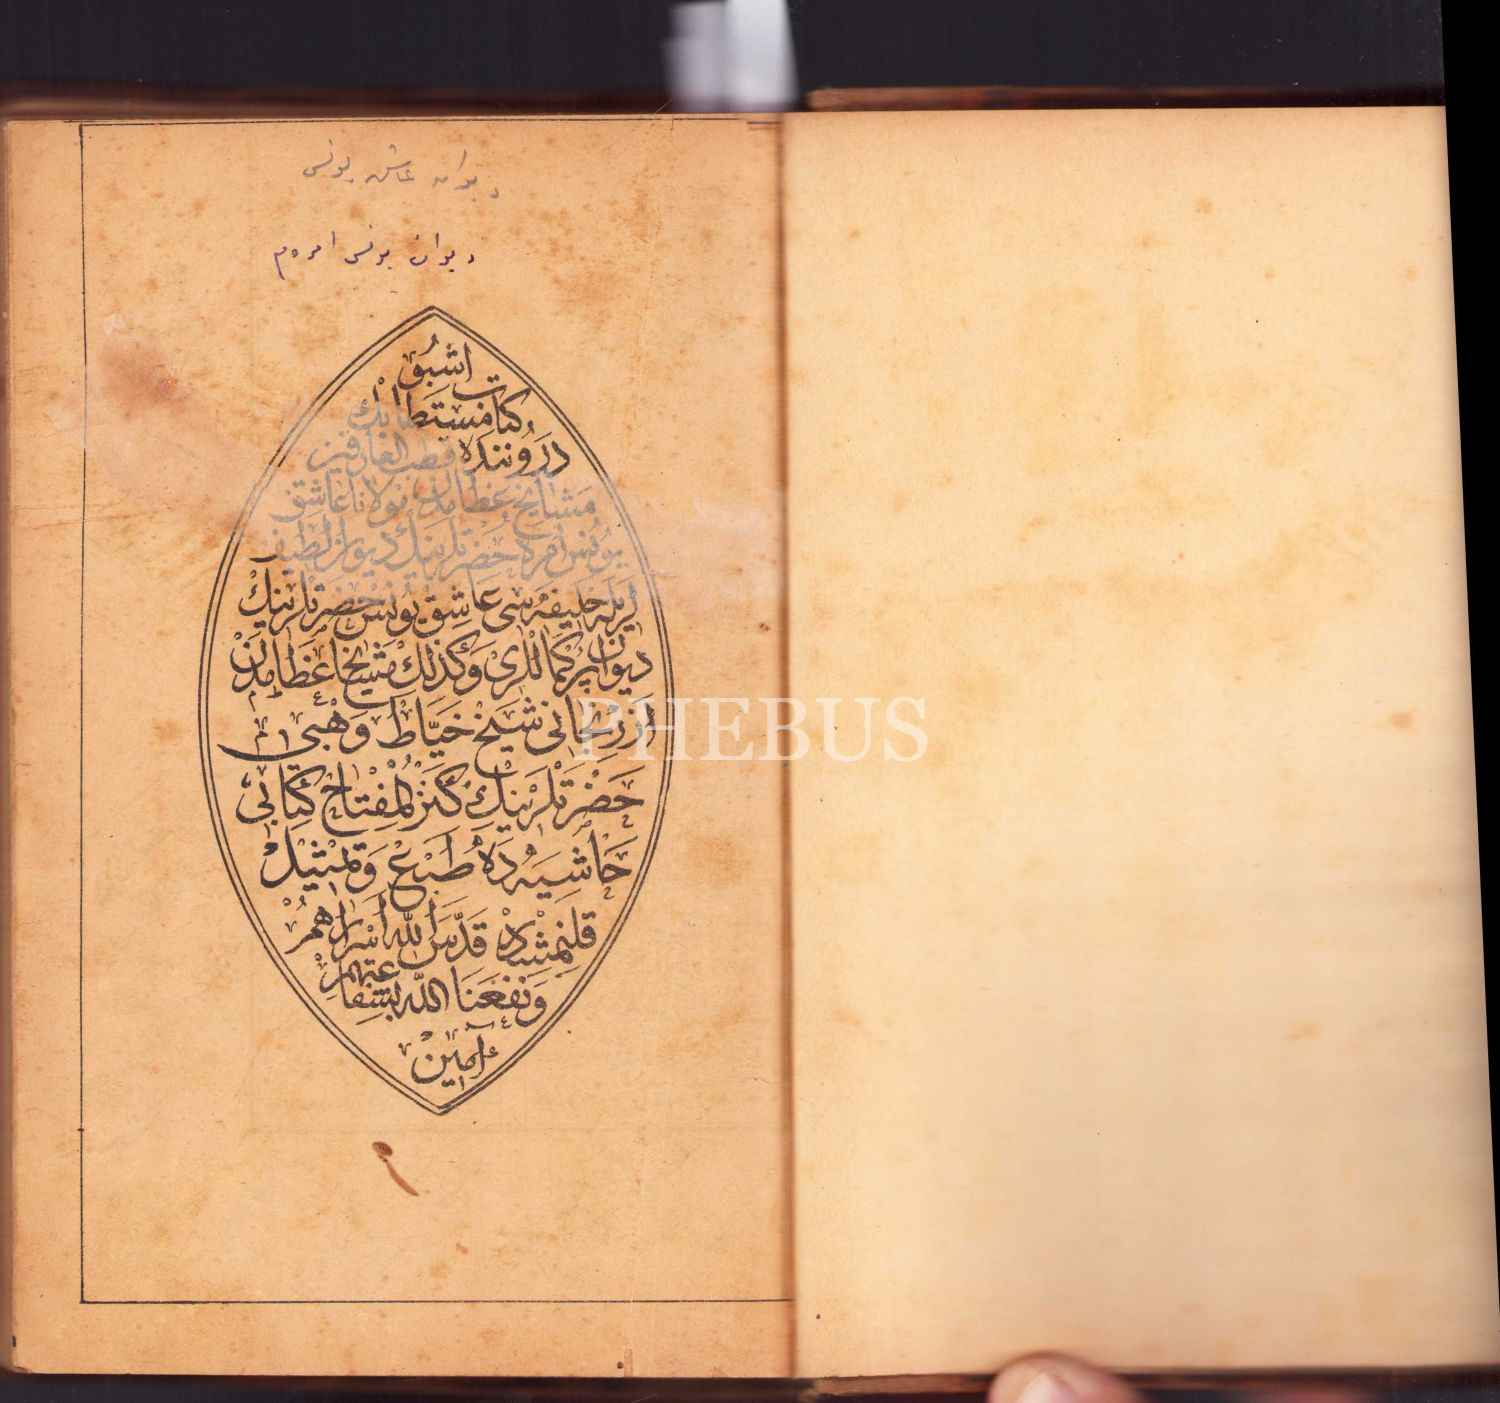 ديوان عاشق يونس
ديوان يونس امره م
اشبُو
كتاب مستطابك
درُوننده قطب العارفين
مشايخ عظامدن مولانا عاشق
يونس امره حضرتلرينك ديوان لطيف
ايله خليفه سى عاشق يونس حضرتلرينك
ديوان پركماللرى وكذلك مشايخ عظامدن
ازرنجانى شيخ خيّاط وهبى
حضرتلرينك كنز المفتاح كتابى
حاشيه ده طبع وتمثيل
قلنمشدر قدّس الله اسرارهم
ونفعنا الله بشفاعتهم
آمين
PHEBUS